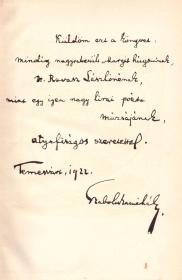 Küldöm ezt a könyvet:
mindig nagyrabecsült Margit húgomnak,
dr. Ravasz Lászlónénak,
mint egy igen nagy lírai poéta
múzsájának,
atyafiságos szeretettel.
Temesvár, 1922.
Szabolcska Mihály.